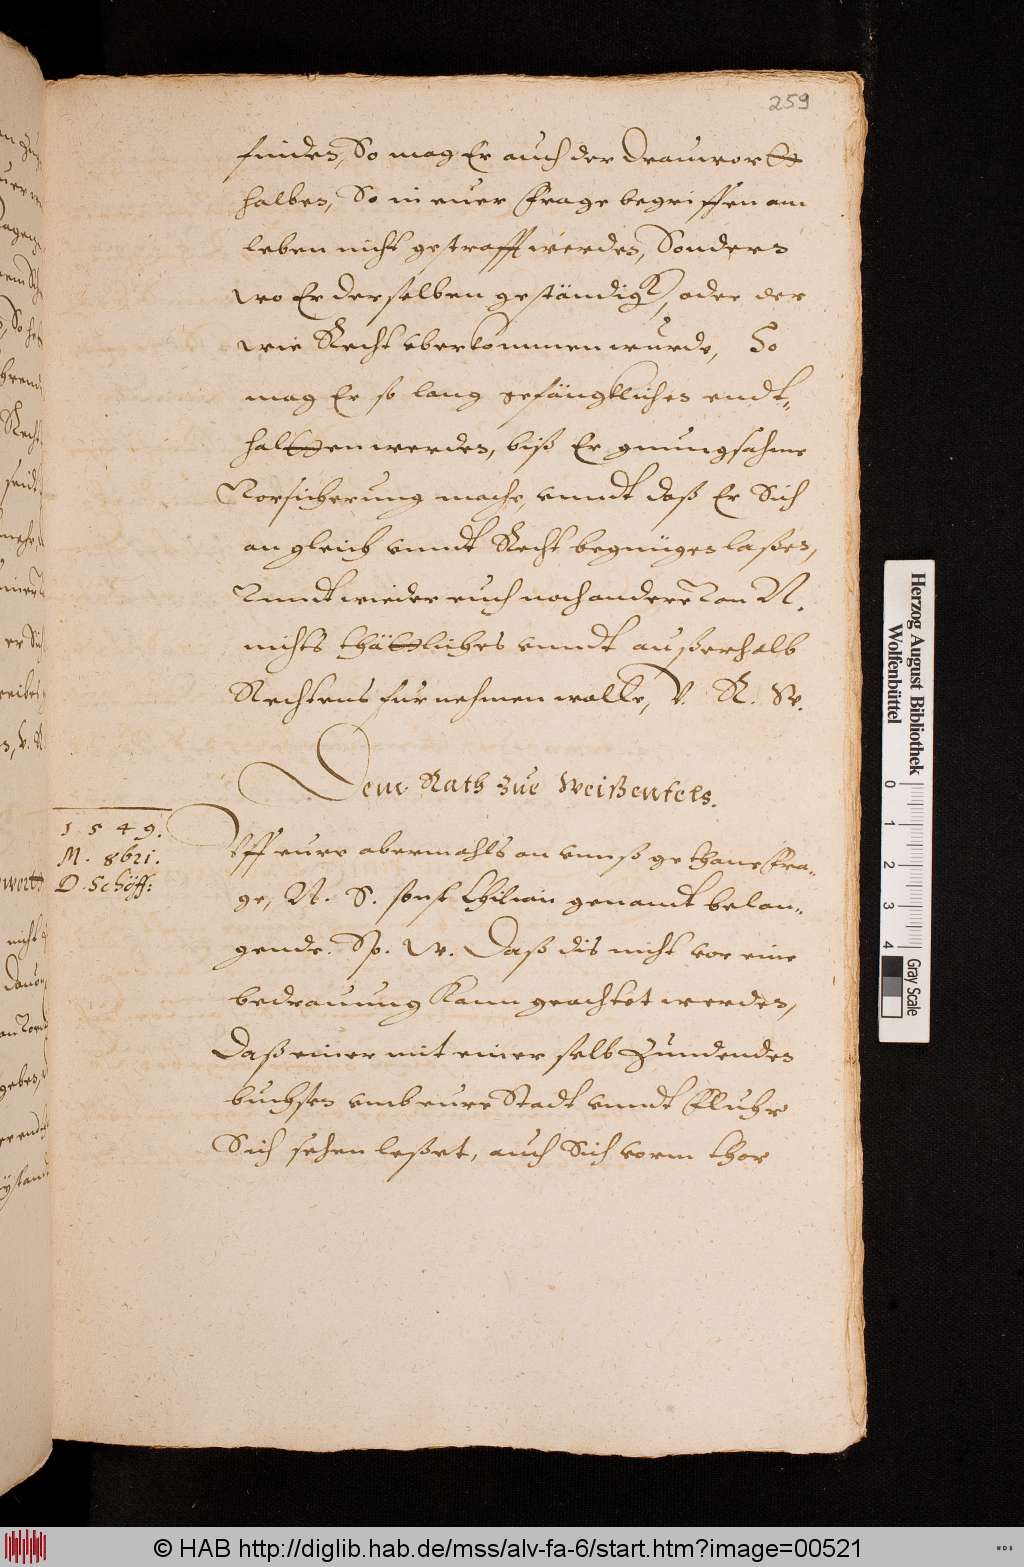 259
finden, So mag Er auch der Drauwortt
halben, So in euer Frage begriffen am
leben nicht gestrafft werden, Sondern
wo Er derselben geständig, oder der
wie Recht uberkommen wurde, So
mag Er so lang gefängklichen endt„
haltten werden, biß Er gnungsahme
Vorsicherung mache, unndt daß Er Sich
an gleich unndt Recht begnügen laßen,
Vnndt wieder euch noch andere Von N.
nichts thättliches unndt außerhalb
Rechtens fur nehmen wolle, V. R. W.
Dem Rath zue Weißenfels.
1549.
M. 8bri.
D. Schöff:
Vff eure abermahls an unnß gethane Fra„
ge, N. S. sonst Chilian genandt belan„
gende. Sp. W. Daß dis nicht vor eine
bedrauung Kann geachtet werden,
Daß einer mit einer selb Zundenden
buchsen umb eure Stadt unndt Fluhr
Sich sehen leßet, auch Sich vorm thor
Herzog August Bibliothek
Wolfenbüttel
0 1 2 3 4
Gray Scale
© HAB http://diglib.hab.de/mss/alv-fa-6/start.htm?image=00521